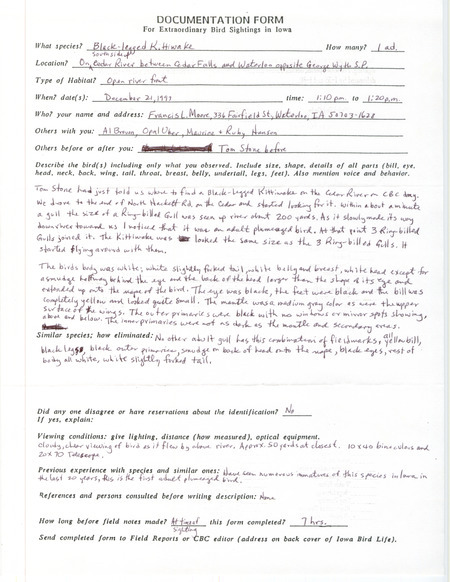 DOCUMENTATION FORM
For Extraordinary Bird Sightings in Iowa
What species? Black-legged Kittiwake How many? 1 ad.
Location? On Cedar River between Cedar Falls and Waterloo opposite George Wyth S.P.
Type of Habitat? Open river front
When? date(s): December 21, 1997 time: 1:10 pm to 1:20 p.m.
Who? your name and address: Francis L. Moore, 336 Fairfield St, Waterloo, IA 50703-1628
Others with you: Al Brown, Opal Uher, Maurine + Ruby Hanson
Others before or after you: Tom Stone before
Describe the bird(s) including only what you observed. Include size, shape, details of all parts (bill, eye,
head, neck, back, wing, tail, throat, breast, belly, undertail, legs, feet). Also mention voice and behavior.
Tom Stone had just told us where to find a Black-legged Kittiwake on the Cedar River on CBC day.
We drove to the end of North Hackett Rd. on the Cedar and started looking for it. Within about a minute
a gull the size of a Ring-billed Gull was seen up river about 200 yards. As it slowly made its way
down river toward us I noticed that it was an adult plumaged bird. At that point 3 Ring-billed
Gulls joined it. The Kittiwake was looked the same size as the 3 Ring-billed Gulls. It
started flying around with them.
The birds body was white; white slightly forked tail, white belly and breast, white head except for
a smudge behind the eye and the back of the head larger than the shape of its eye and
extended up onto the nape of the bird. The eye was black, the feet were black and the bill was
completely yellow and looked quite small. The mantle was a medium gray color as were the upper
surface of the wings. The outer primaries were black with no windows or mirror spots showing,
above and below. The inner primaries were not as dark as the mantle and secondary ones.
Similar species; how eliminated: No other adult gull has this combination of fieldmarks, all yellow bill,
black legs, black outer primaries, smudge on back of head onto the nape, black eyes, rest of
body all white, white slightly forked tail.
Did any one disagree or have reservations about the identification? No
If yes, explain:
Viewing conditions: give lighting, distance (how measured), optical equipment.
cloudy, clear viewing of bird as it flew by above river. Approx. 50 yards at closest. 10x40 binoculars and
20x70 Telescope.
Previous experience with species and similar ones: Have seen numerous immatures of this species in Iowa in
the last 20 years, this is the first adult plumaged bird.
References and persons consulted before writing description: None
How long before field notes made? At time of sighting this form completed? 7 hrs.
Send completed form to Field Reports or CBC editor (address on back cover of Iowa Bird Life)